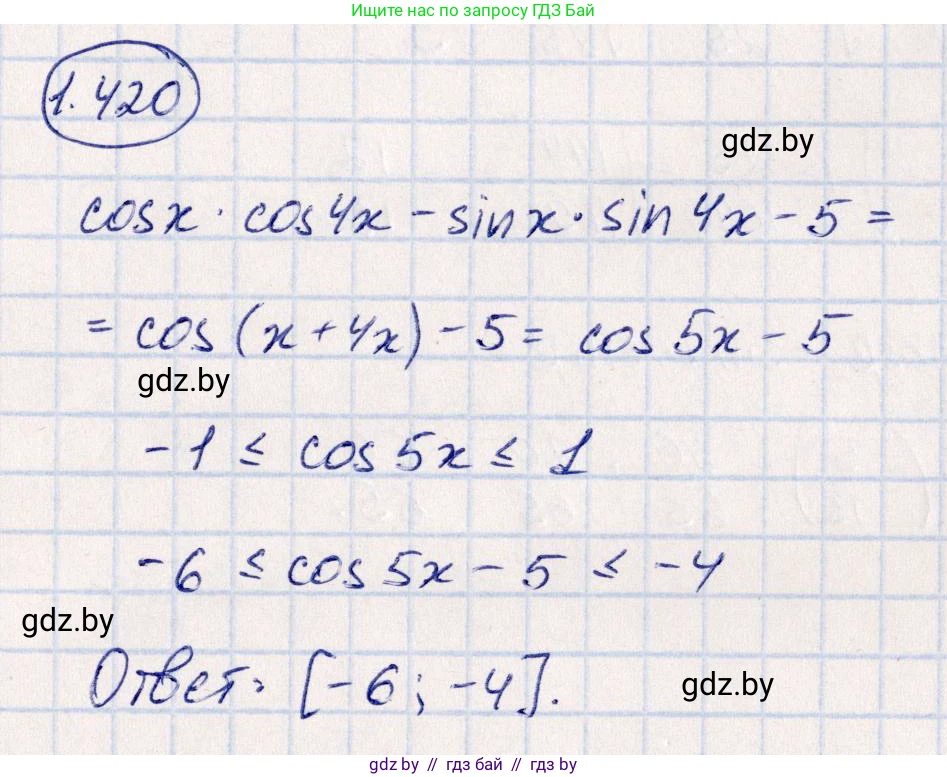 Ищите нас по запросу ГДЗ Бай
1.420
gdz.by
cosx · cos4x - sinx · sin4x - 5 =
= cos(x + 4x) - 5 = cos5x - 5
gdz.by
-1 ≤ cos5x ≤ 1
-6 ≤ cos5x - 5 ≤ -4
gdz.by
Ответ: [-6; -4].
gdz.by
gdz.by // гдз бай // gdz by